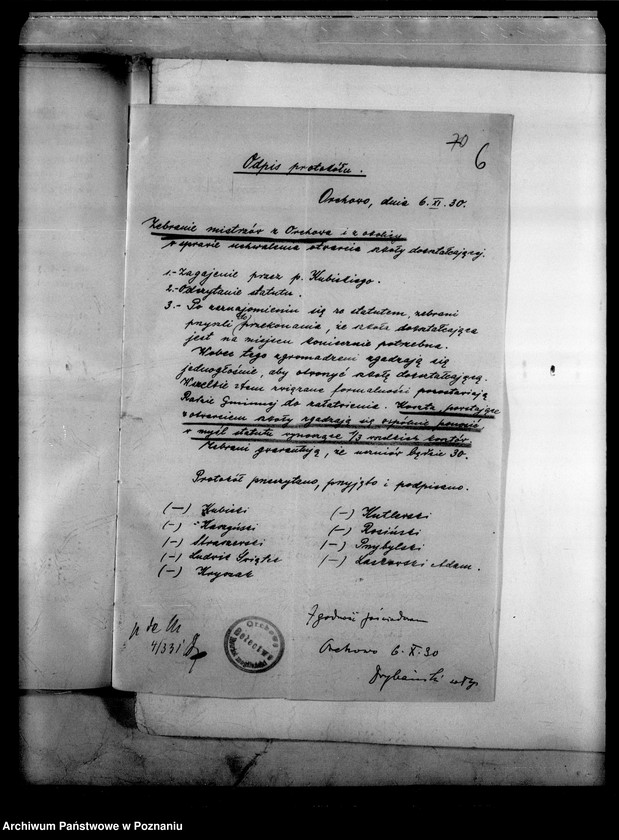 70
6
Odpis protokółu.
Orchowo, dnia 6.XI.30.
Zebranie mistrzów z Orchowa i z okolicy
w sprawie uchwalenia otwarcia szkoły dokształcającej.
1.- Zagajenie przez p. Kubickiego.
2.- Odczytanie statutu.
3.- Po zaznajomieniu się ze statutem, zebrani
przyszli do przekonania, że szkoła dokształcająca
jest na miejscu koniecznie potrzebna.
Wobec tego zgromadzeni zgadzają się
jednogłośnie, aby otworzyć szkołę dokształcającą.
Wszelkie z tem związane formalności pozostawiają
Radzie Gminnej do załatwienia. Koszta powstające
z otwarciem szkoły zgadzają się wspólnie ponosić
w myśl statutu wynoszące 1/3 wszelkich kosztów.
Zebrani gwarantują, że uczniów będzie 30.
Protokół przeczytano, przyjęto i podpisano.
(—) Kubicki (—) Kutlerski
(—) Karzyński (—) Rosiński
(—) Straszewski (—) Przybylski
(—) Ludwik Świątek (—) Laskowski Adam.
(—) Kryszak
Zgodność poświadczam
Orchowo 6.X.30
p. de
4/331
Orchowo